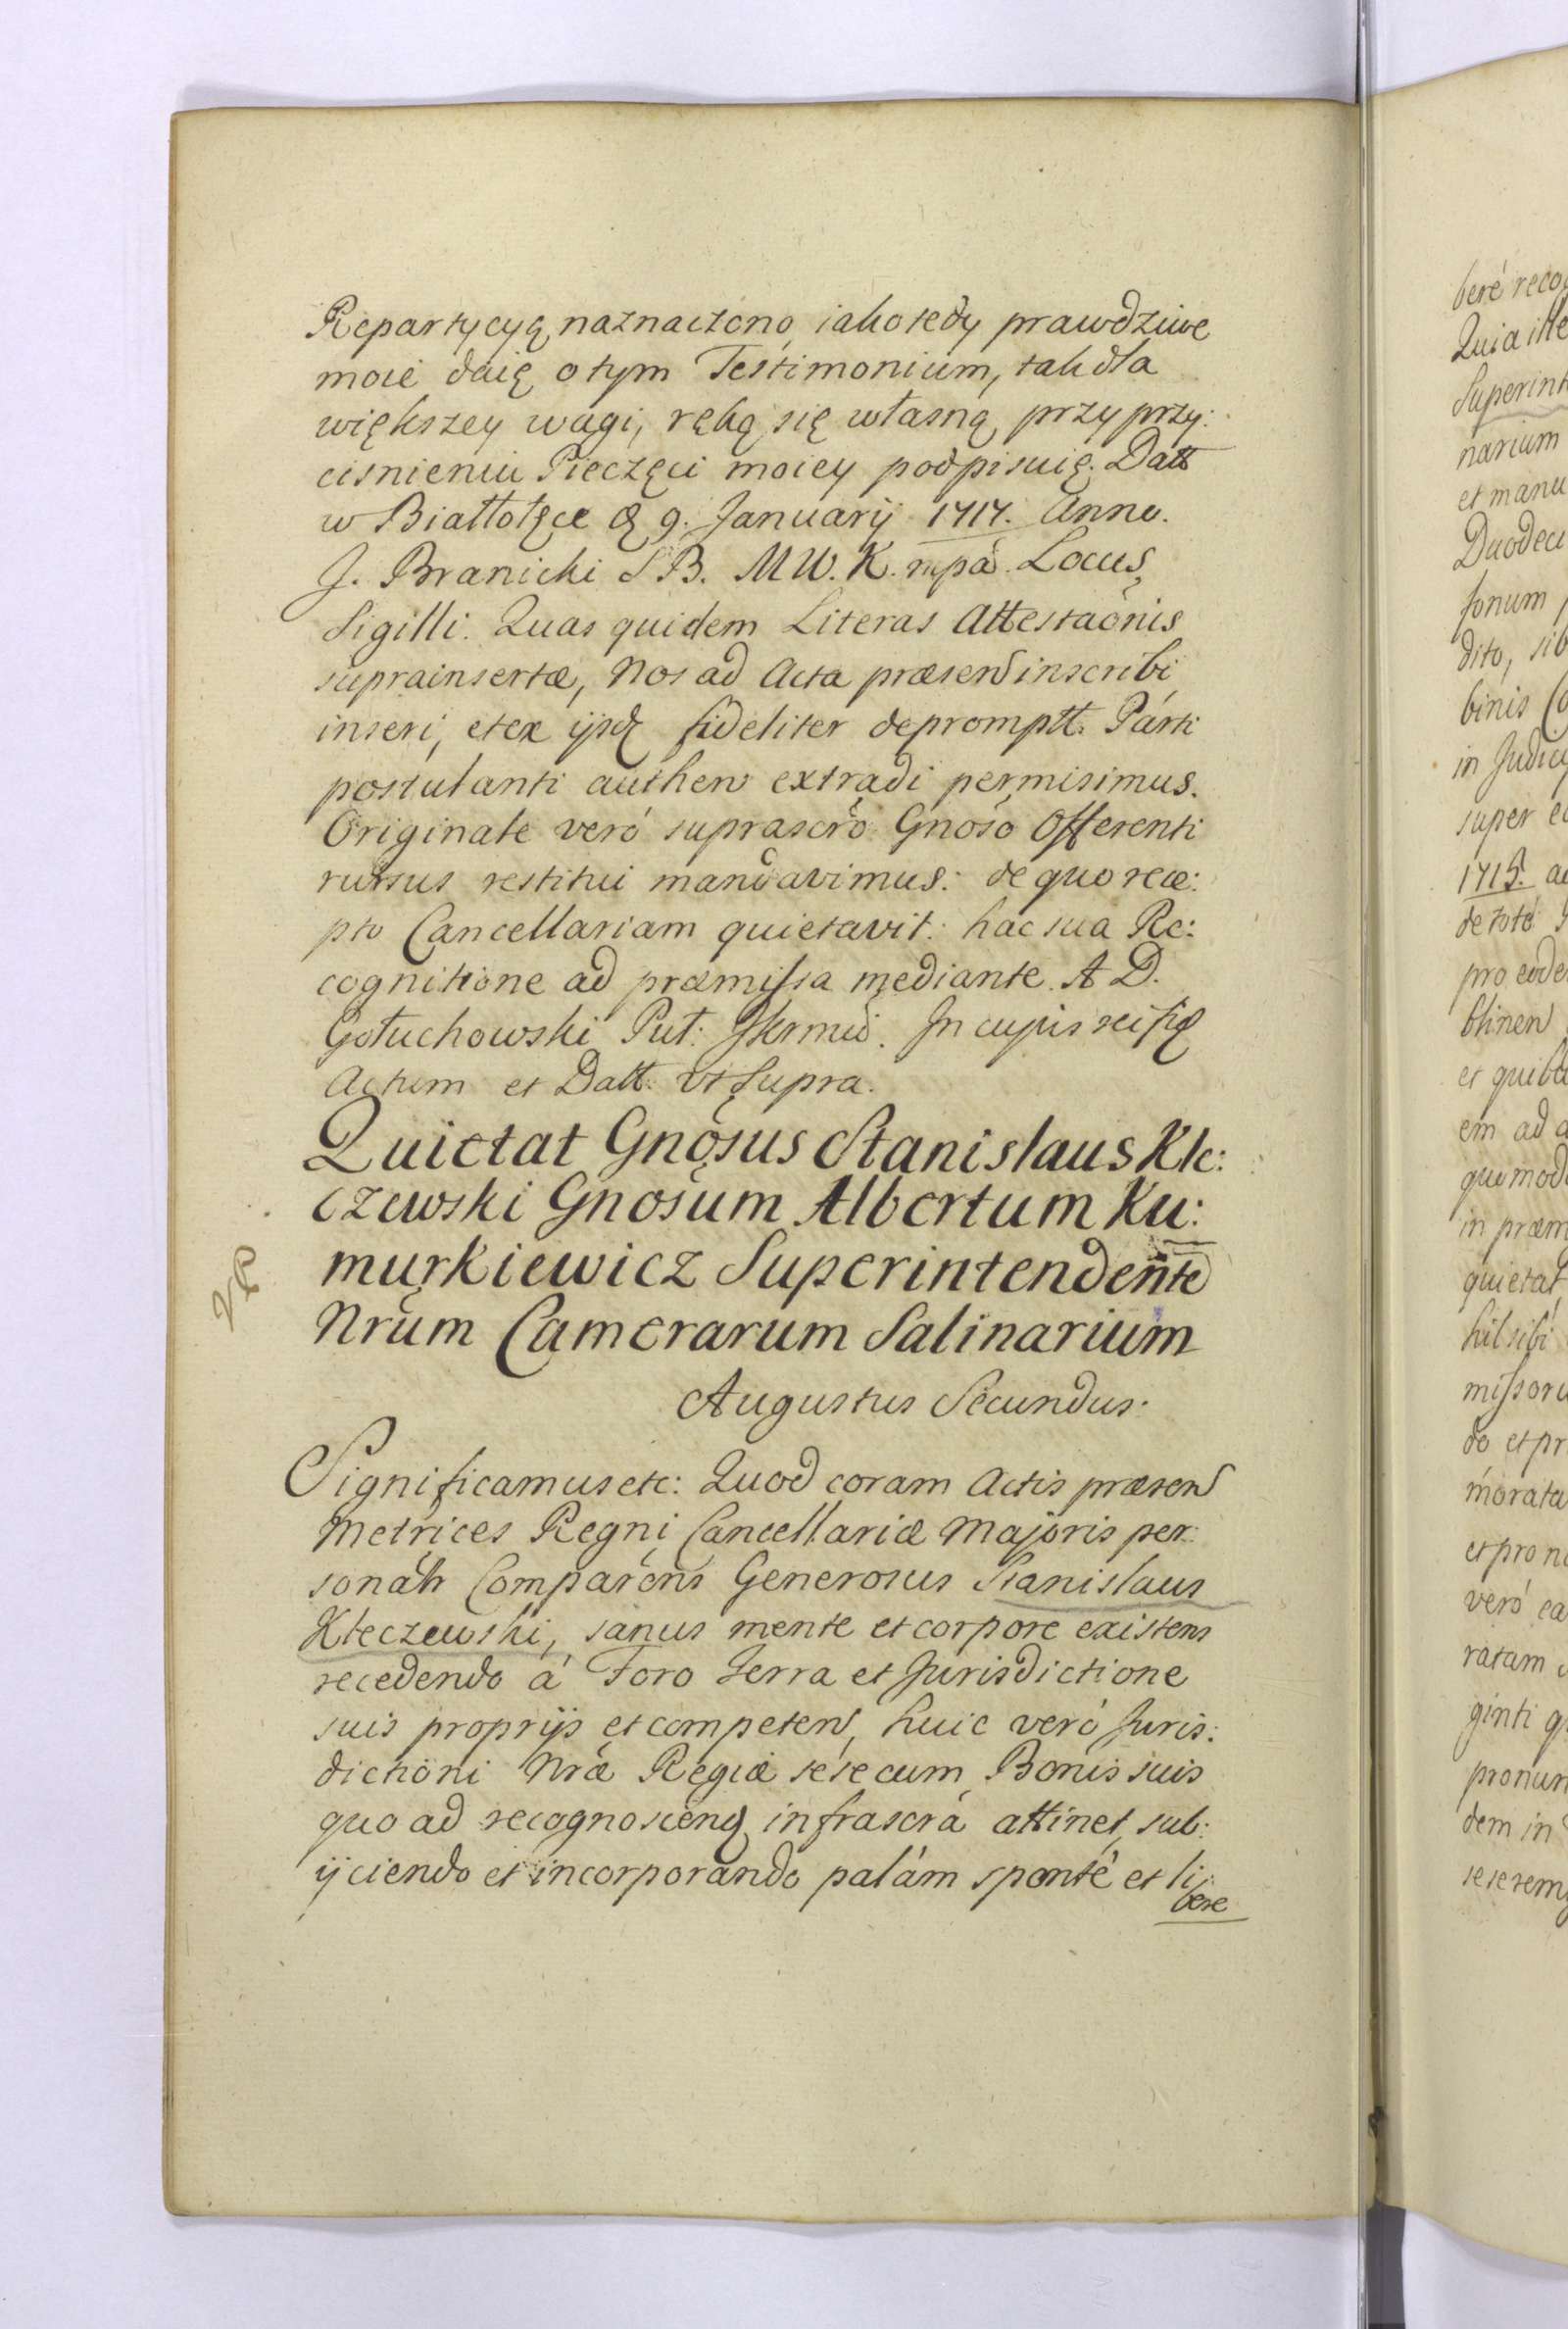 Repartycyą naznaczono, iako tedy prawdziwe
moie daię o tym Testimonium, tak dla
większey wagi, ręką się własną przy przy:
cisnieniu Pieczęci moiey podpisuię. Datt
w Białłołęce D 9. Januarij 1717. Anno.
J. Branicki S B. M W. K. mpã. Locus
Sigilli. Quas quidem Literas Attestaõnis
suprainsertæ, Nos ad Acta præsen inscribi
inseri, et ex ijsdẽ fideliter depromptt. Parti
postulanti authen extradi permisimus.
Originale veró suprascrõ Gnõso Offerenti
rursus restitui mandavimus: de quo rece:
pto Cancellariam quietavit: hac sua Re:
cognitione ad præmissa mediante. A D.
Gołuchowski Put: In cujus rei fidẽ
Actum et Datt. Vt Supra.
Quietat Gnõsus Stanislaus Kle:
czewski Gnõsum Albertum Ku:
murkiewicz Superintendente
Nrũm Camerarum Salinarium
Augustus Secundus.
Significamus etc: Quod coram Actis præsen
Metrices Regni Cancellariæ Majoris per:
sonalr Comparens Generosus Stanislaus
Kłeczewski, sanus mente et corpore existens
recedendo á Foro Terra et Jurisdictione
suis proprijs et competen, huic veró Juris:
dictioni Nræ Regiæ sese cum Bonis suis
quo ad recognoscend infrascrã attinet, sub:
ijciendo et incorporando palám sponté et li:
bere
beré reco
Quia ille
Superint
narium
et manu
Duodeci
sonum p
dito, sib
binis Co
in Judici
super e
1715. a
de toto
pro eode
blinen
et quibu
em ad a
quomod
in præm
quietat
hil sibi
missoru
do et pr
morata
et pro n
veró ea
ratam
ginti q
pronun
dem in
sese rem